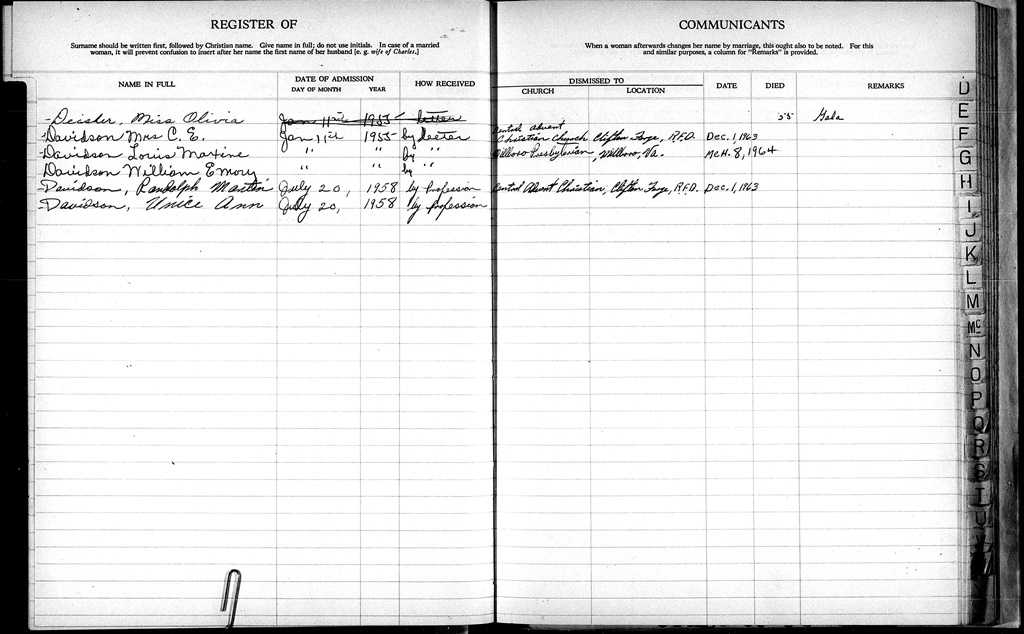 REGISTER OF
Surname should be written first, followed by Christian name. Give name in full; do not use initials. In case of a married
woman, it will prevent confusion to insert after her name the first name of her husband [e. g. wife of Charles.]
NAME IN FULL
DATE OF ADMISSION
DAY OF MONTH
YEAR
HOW RECEIVED
COMMUNICANTS
When a woman afterwards changes her name by marriage, this ought also to be noted. For this
and similar purposes, a column for "Remarks" is provided.
DISMISSED TO
CHURCH
LOCATION
DATE
DIED
REMARKS
Deisher, Miss Olivia Jan 11th 1955 letter '55 Gala
Davidson Mrs C. E. Jan 11th 1955 by letter Central Advent Christian Church, Clifton Forge, R.F.D. Dec. 1, 1963
Davidson Louis Maxine " " by " Millboro Presbyterian, Millboro, Va. Mch. 8, 1964
Davidson William Emory " " by
Davidson, Randolph Martin July 20, 1958 by Profession Central Advent Christian, Clifton Forge, R.F.D. Dec. 1, 1963
Davidson, Unice Ann July 20, 1958 by Profession
D
E
F
G
H
I
J
K
L
M
Mc
N
O
P
Q
R
S
T
U